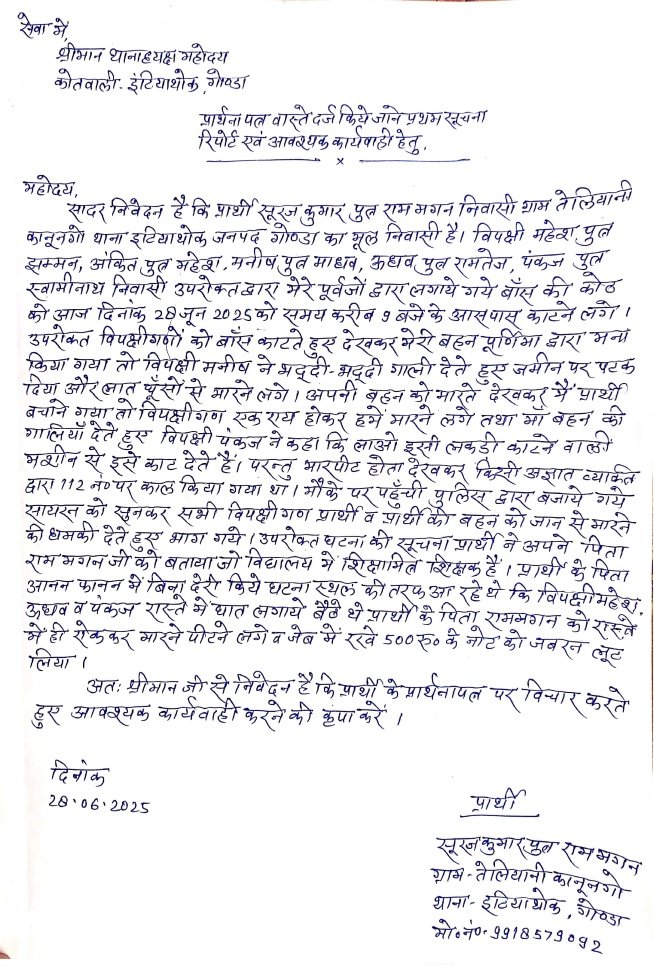 सेवा में,
श्रीमान थानाध्यक्ष महोदय
कोतवाली- इंटियाथोक, गोण्डा
प्रार्थना पत्र वास्ते दर्ज किये जाने प्रथम सूचना
रिपोर्ट एवं आवश्यक कार्यवाही हेतु.
x
महोदय,
सादर निवेदन है कि प्रार्थी सूरज कुमार पुत्र राम मगन निवासी ग्राम तेलियानी
कानूनगो थाना इटियाथोक जनपद गोण्डा का मूल निवासी है। विपक्षी महेश पुत्र
झम्मन, अंकित पुत्र महेश, मनीष पुत्र माधव, ऊधव पुत्र रामतेज, पंकज पुत्र
स्वामीनाथ निवासी उपरोक्त द्वारा मेरे पूर्वजों द्वारा लगाये गये बाँस की कोठ
को आज दिनांक 28 जून 2025 को समय करीब 9 बजे के आसपास काटने लगे।
उपरोक्त विपक्षीगणों को बाँस काटते हुए देखकर मेरी बहन पूर्णिमा द्वारा मना
किया गया तो विपक्षी मनीष ने भद्दी-भद्दी गाली देते हुए जमीन पर पटक
दिया और लात घूँसों से मारने लगे। अपनी बहन को मारते देखकर मैं प्रार्थी
बचाने गया तो विपक्षीगण एक राय होकर हमें मारने लगे तथा माँ बहन की
गालियाँ देते हुए विपक्षी पंकज ने कहा कि लाओ इसी लकडी काटने वाली
मशीन से इसे काट देते हैं। परन्तु मारपीट होता देखकर किसी अज्ञात व्यक्ति
द्वारा 112 नं० पर काल किया गया था। मौके पर पहुँची पुलिस द्वारा बजाये गये
सायरन को सुनकर सभी विपक्षीगण प्रार्थी व प्रार्थी की बहन को जान से मारने
की धमकी देते हुए भाग गये। उपरोक्त घटना की सूचना प्रार्थी ने अपने पिता
राम मगन जी को बताया जो विद्यालय में शिक्षामित्र शिक्षक है। प्रार्थी के पिता
आनन फानन में बिना देरी किये घटना स्थल की तरफ आ रहे थे कि विपक्षी महेश,
ऊधव व पंकज रास्ते में घात लगाये बैठे थे प्रार्थी के पिता राममगन को रास्ते
में ही रोककर मारने पीटने लगे व जेब में रखे 500 रू० के नोट को जबरन लूट
लिया।
अतः श्रीमान जी से निवेदन है कि प्रार्थी के प्रार्थनापत्र पर विचार करते
हुए आवश्यक कार्यवाही करने की कृपा करें।
दिनांक
28.06.2025
प्रार्थी
सूरज कुमार पुत्र राम मगन
ग्राम- तेलियानी कानूनगो
थाना- इटियाथोक, गोण्डा
मो०नं०- 9918579092